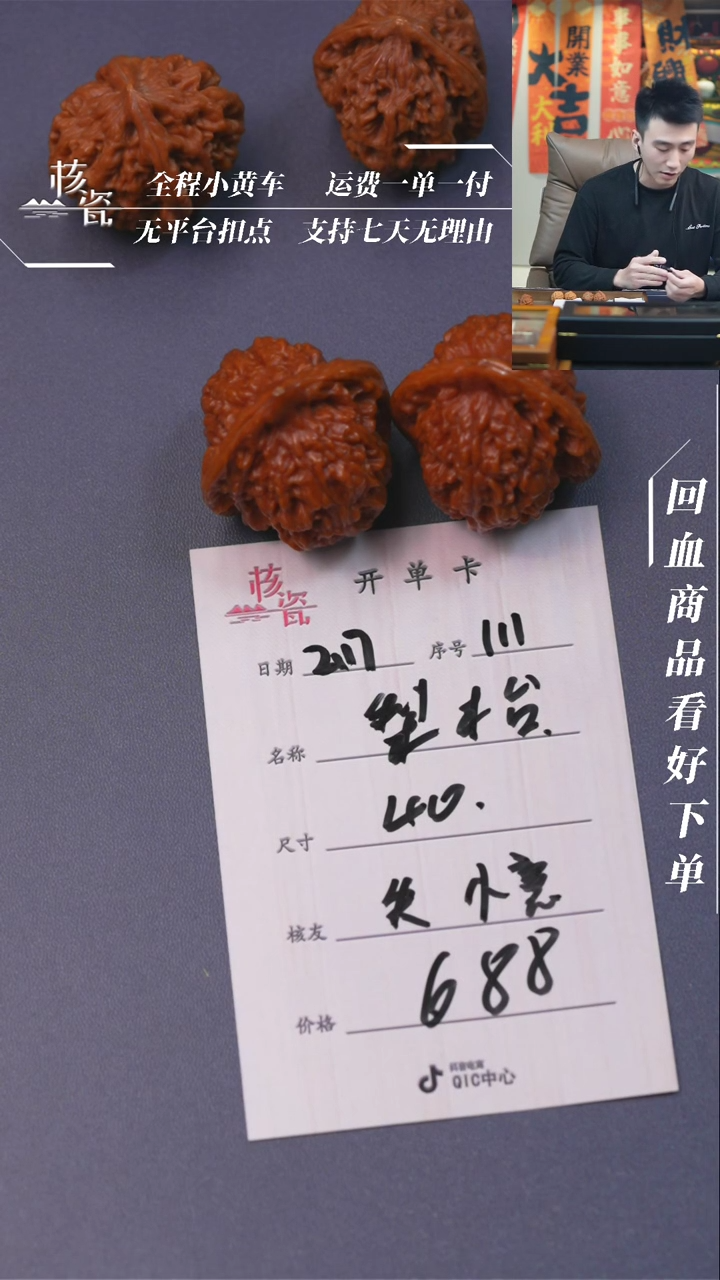 核瓷
全程小黄车 运费一单一付
无平台扣点 支持七天无理由
開業
大吉
大利
事事如意
财
回血商品看好下单
核瓷
开单卡
日期 2.17 序号 111
名称
尺寸 40.
核友
价格 688
抖音电商
QIC中心